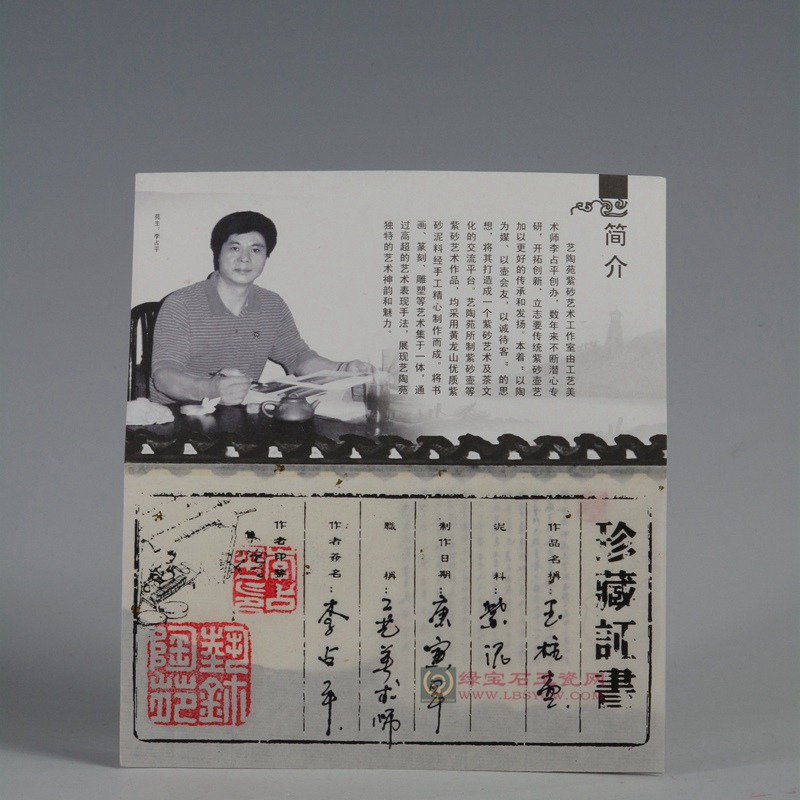 简介
艺陶苑紫砂艺术工作室由工艺美
术师李占平创办，数年来不断潜心专
研，开拓创新，立志要传统紫砂壶艺
加以更好的传承和发扬。本着“以陶
为媒、以壶会友，以诚待客”的思
想，将其打造成一个紫砂艺术及茶文
化的交流平台。艺陶苑所制紫砂壶等
紫砂艺术作品，均采用黄龙山优质紫
砂泥料经手工精心制作而成。将书
画、篆刻、雕塑等艺术集于一体，通
过高超的艺术表现手法，展现艺陶苑
独特的艺术神韵和魅力。
苑主：李占平
珍藏証書
作品名稱：玉柱壺
泥料：紫泥
制作日期：庚寅年
職稱：工艺美术师
作者簽名：李占平
作者印章：
绿宝石陶瓷网